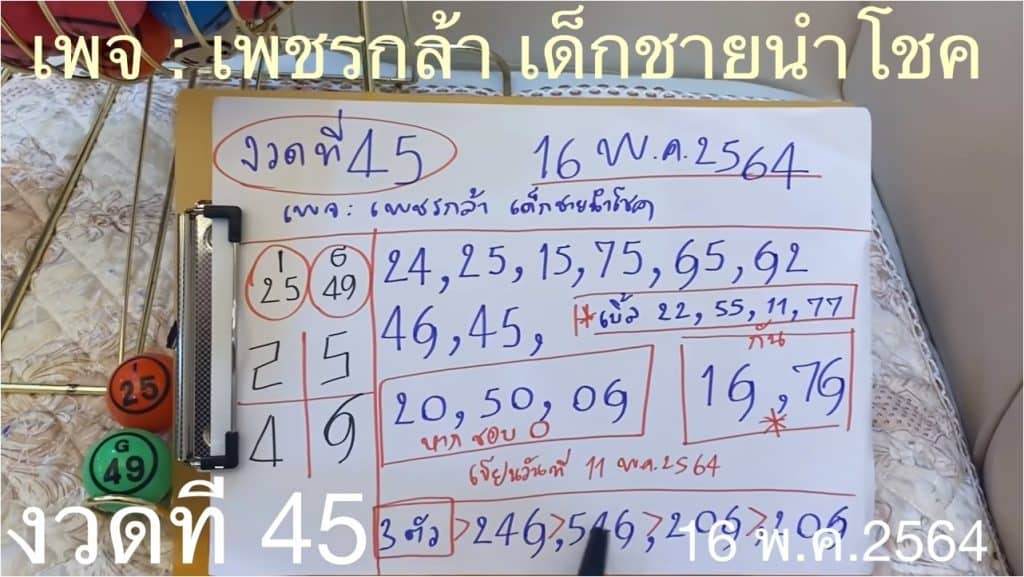 เพจ : เพชรกล้า เด็กชายนำโชค
งวดที่ 45
16 พ.ค.2564
เพจ : เพชรกล้า เด็กชายนำโชค
I
25
G
49
24, 25, 15, 75, 65, 62
46, 45,
*เบิ้ล 22, 55, 11, 77
2 5
4 9
กัน
20, 50, 06
หากชอบ 0
16, 76
*
เขียนวันที่ 11 พ.ค.2564
3 ตัว > 246 >, 546 >, 206 >, 206
I
25
G
49
งวดที่ 45
16 พ.ค.2564